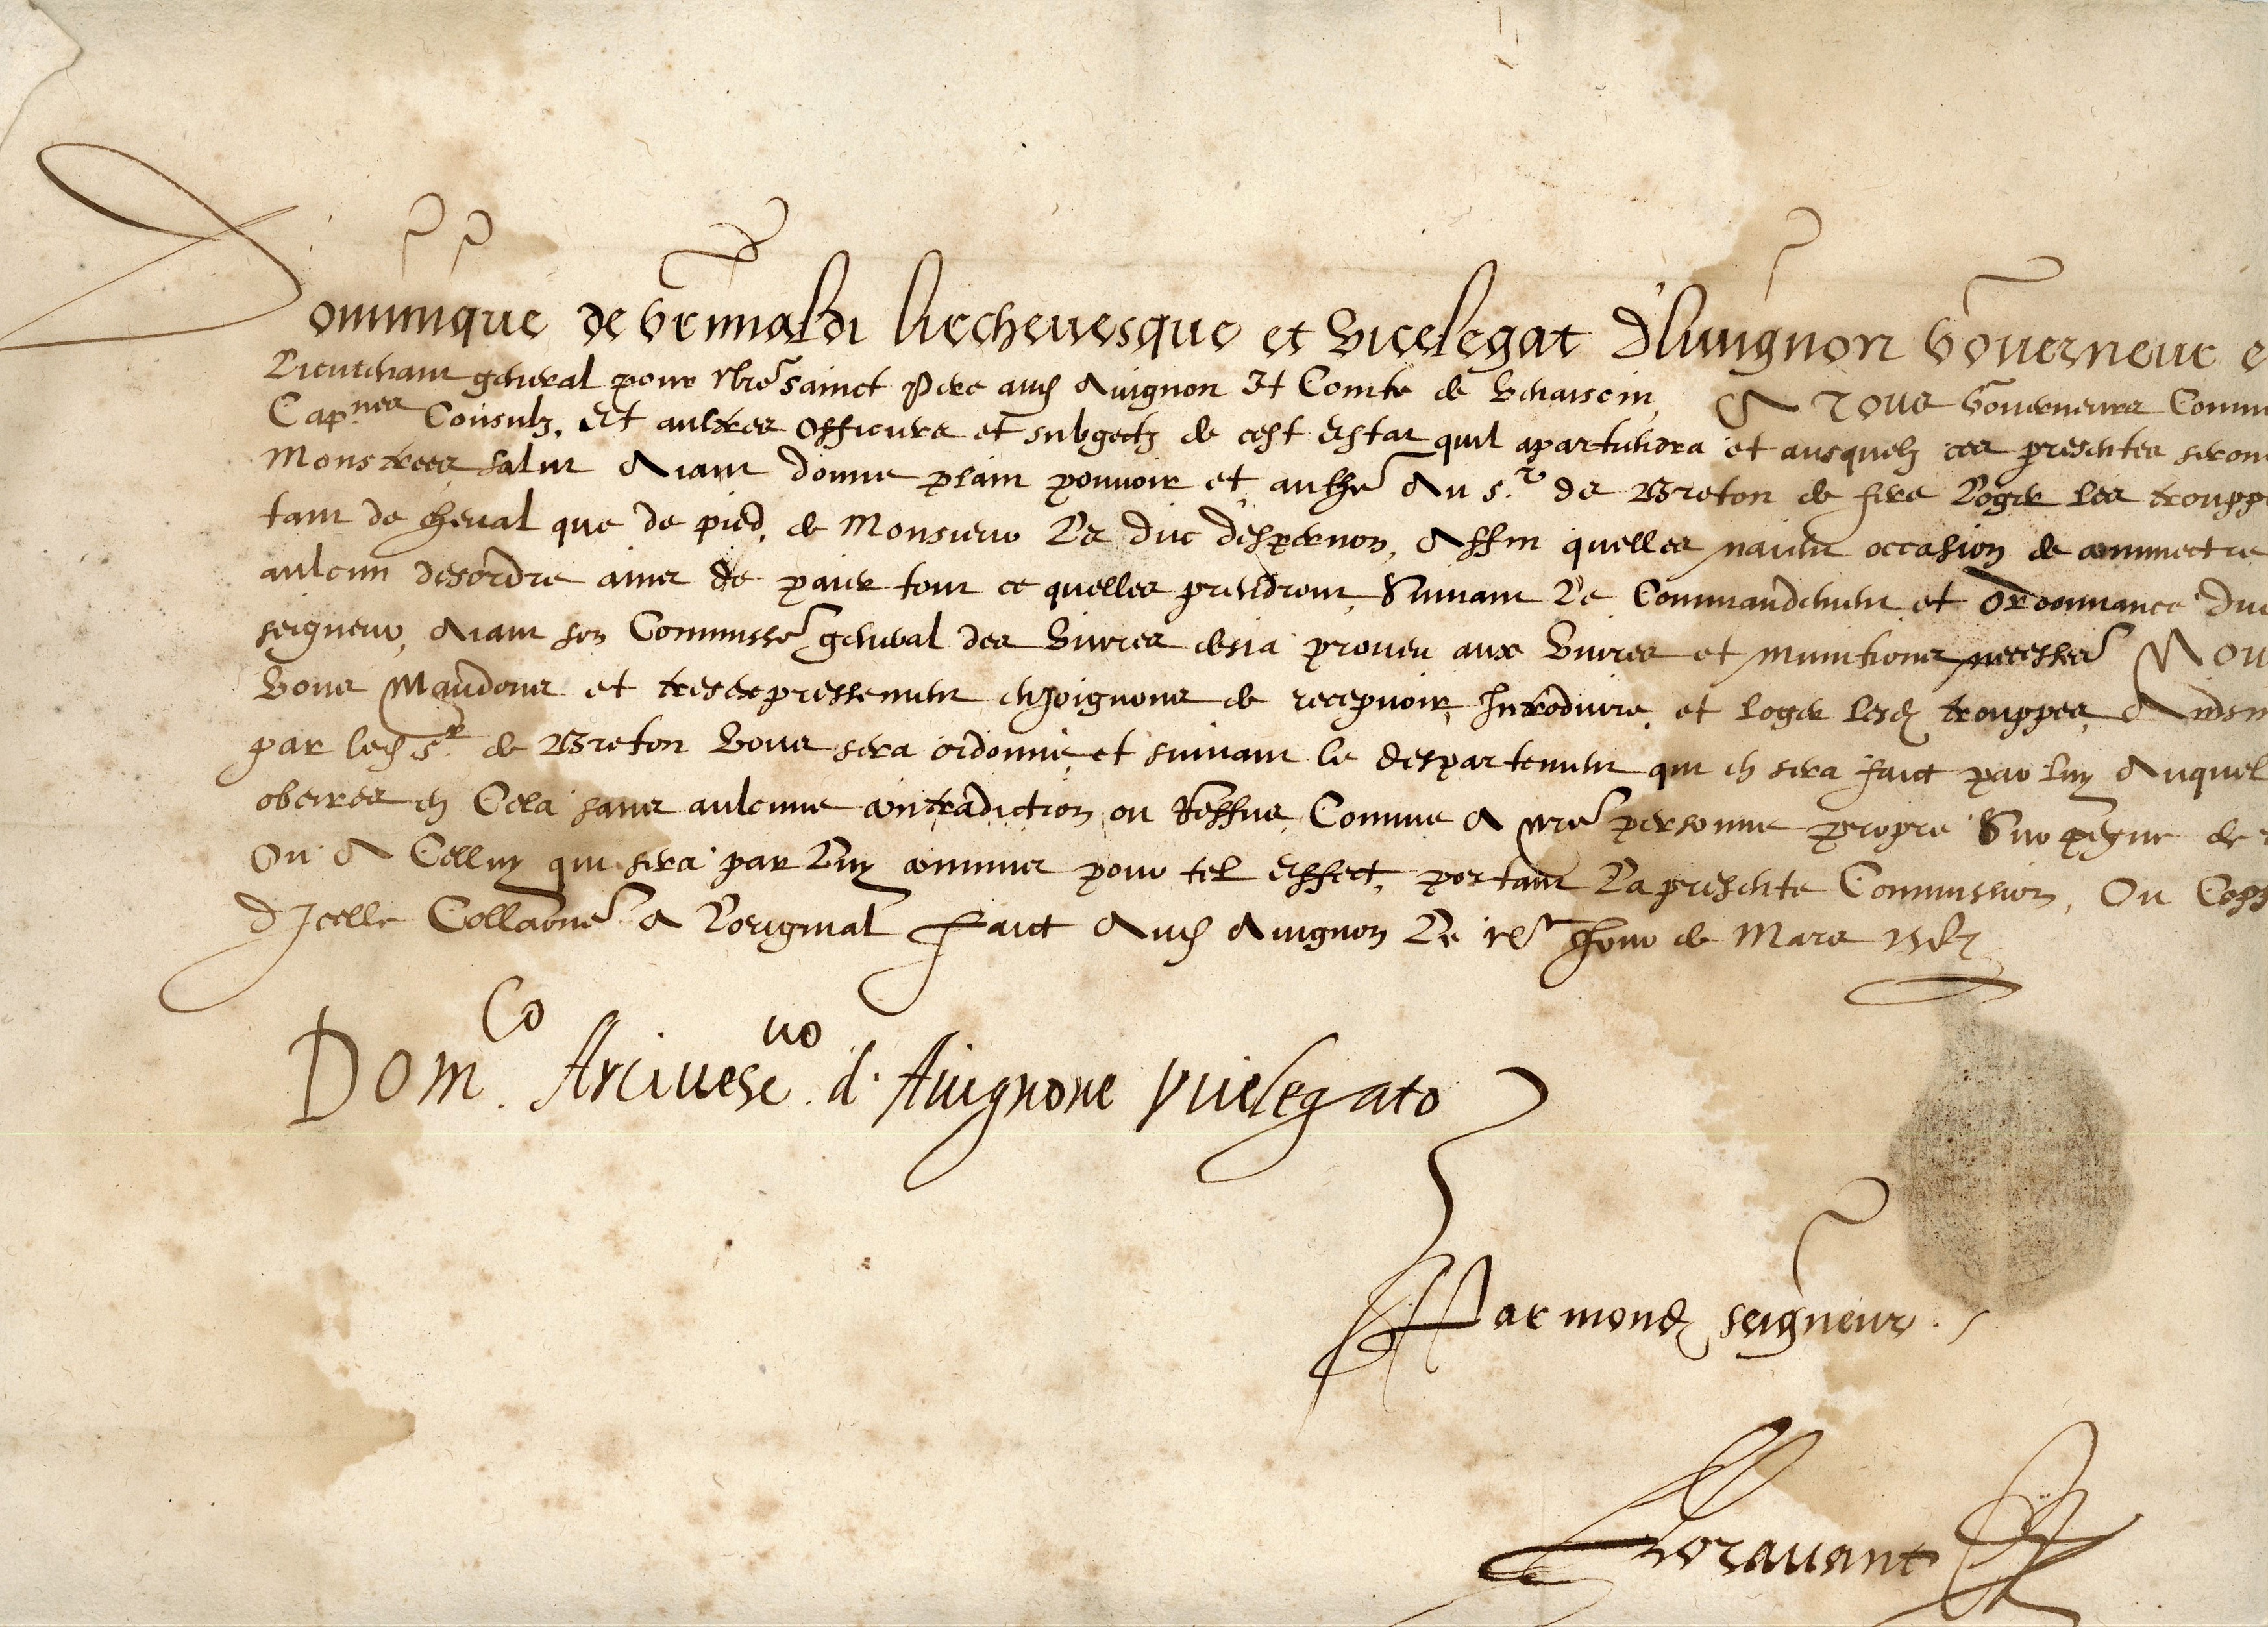 Dominique de Grimaldi Archevesque et Vicelegat d'Avignon Gouverneur e
Lieutenant general pour nre sainct Pere aud Avignon Et Comte de Venaiscin, A Tous Gouverneurs Comm
Cap.nes Consulz, Et aultres Officiers et subgectz de cest Estat quil apartiendra et ausquelz ces presentes seron
Monstrees, salut Aiant donne plain pouvoir et authe Au s.r de Breton de fere Loger les troupp
tant de cheval que de pied, de Monsieur Le duc d'Espernon, Affin quelles naient occasion de commectre
aulcun desordre ains de paier tout ce quelles prendront, Suivant Le Commandement et Ordonnance dud
seigneur, Aiant son Commisse general des Vivres desia proveu aux Vivres et munitions necesseres Nou
Vous Mandons et tresexpressement enjoignons de recepvoir, Introduire, et loger lesd trouppes, Ainsin
par led s.r de Breton Vous sera ordonné, et suivant le despartement qui en sera faict par luy Auquel
obeires en Cela sans aulcune contradiction ou Reffus, Comme A nre personne propre Sur peyne de
Ou A Celluy qui sera par Luy commis pour tel Effect, portant La presente Commission, Ou Copp
d'Icelle Collaonee A L'original Faict Aud Avignon Le Jour de Mars
Dom.co Arcivesc.vo d'Avignone Vicelegato
Par mond seigneur.